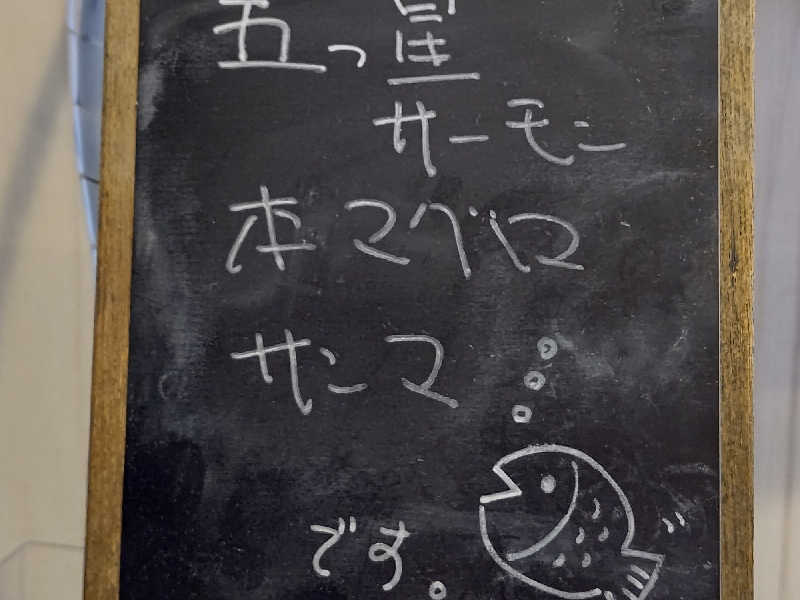 五つ星
サーモン
本マグロ
サンマ
です。